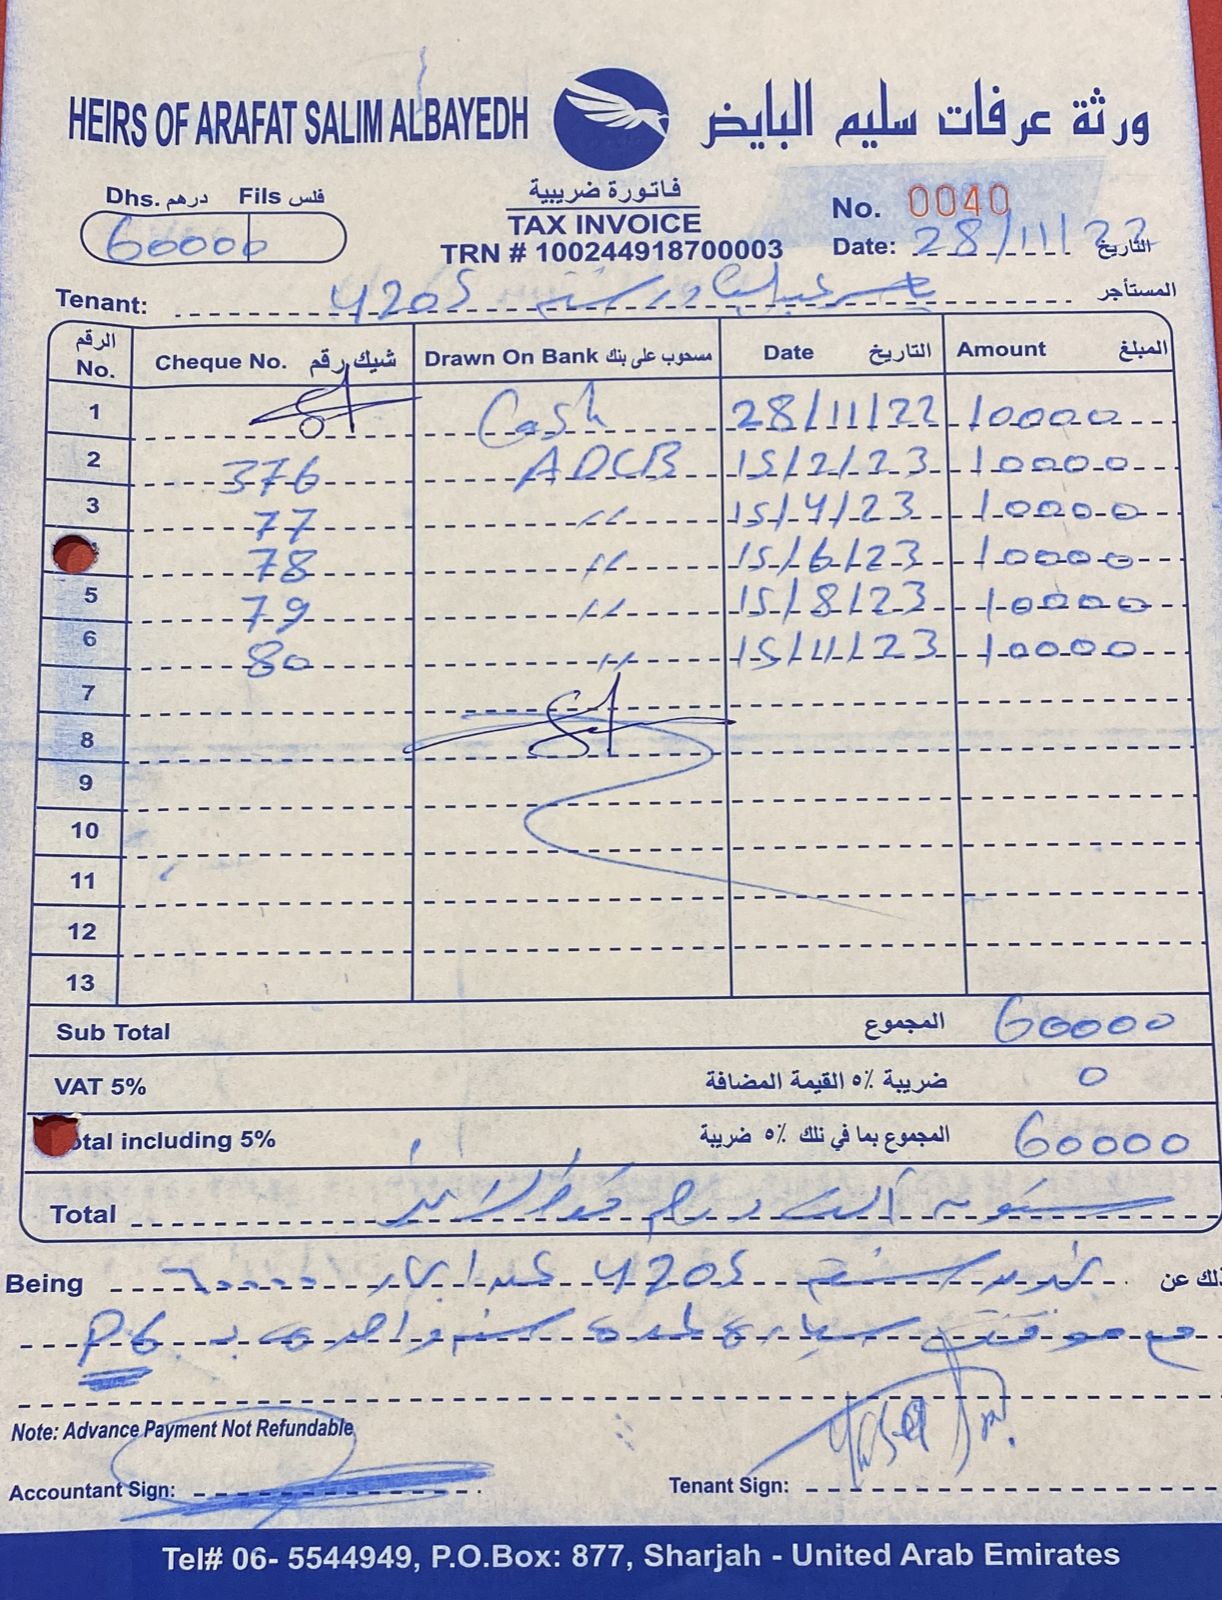 HEIRS OF ARAFAT SALIM ALBAYEDH ورثة عرفات سليم البايض
Dhs. درهم Fils فلس
60000
فاتورة ضريبية
TAX INVOICE
TRN # 100244918700003
No. 0040
Date: 28/11/22 التاريخ
Tenant: 4205 المستأجر
الرقم No. Cheque No. شيك رقم Drawn On Bank مسحوب على بنك Date التاريخ Amount المبلغ
1 Cash 28/11/22 10000
2 376 ADCB 15/2/23 10000
3 77 '' 15/4/23 10000
78 '' 15/6/23 10000
5 79 '' 15/8/23 10000
6 80 '' 15/11/23 10000
7
8
9
10
11
12
13
Sub Total المجموع 60000
VAT 5% ضريبة ٥٪ القيمة المضافة 0
otal including 5% المجموع بما في ذلك ٥٪ ضريبة 60000
Total ستون الف درهم فقط لا غير
Being 4205 60000 ذلك عن
مع موقف سيارة لمدة سنة واحدة P6
Note: Advance Payment Not Refundable
Accountant Sign: Tenant Sign:
Tel# 06- 5544949, P.O.Box: 877, Sharjah - United Arab Emirates